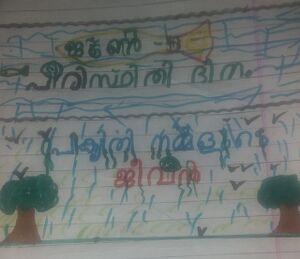 ജൂൺ -5
പരിസ്ഥിതി ദിനം
പ്രകൃതി നമ്മളുടെ
ജീവൻ